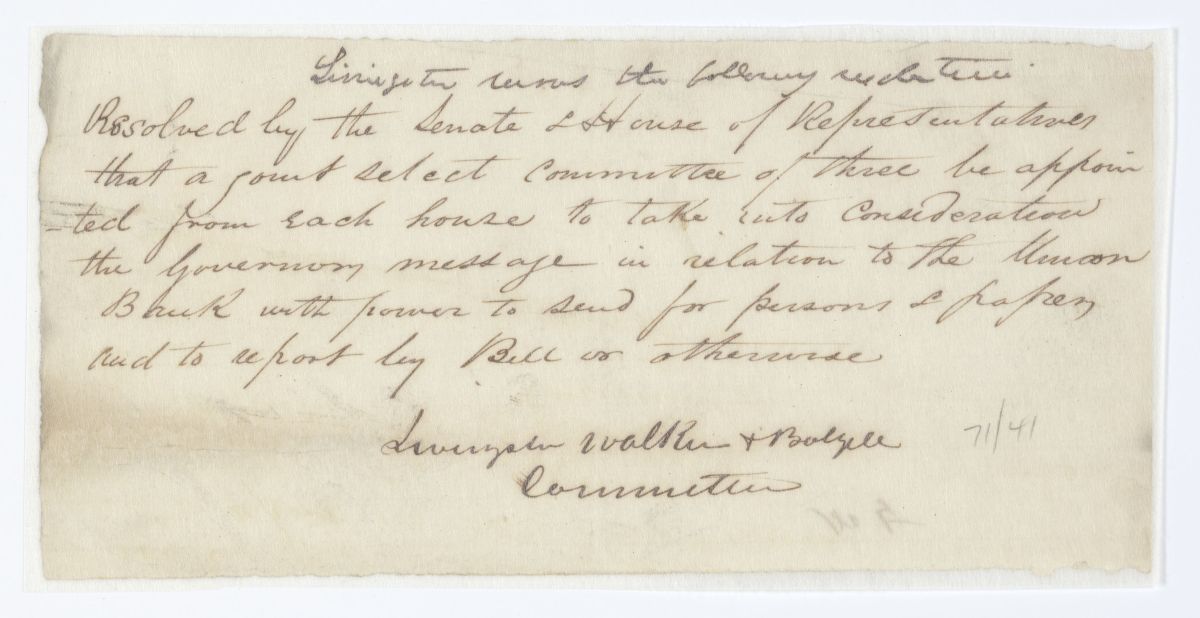 Livingston moves the following resolution
Resolved by the Senate & House of Representatives
that a joint select Committee of three be appoin
ted from each house to take into Consideration
the Governors message in relation to the Union
Bank with power to send for persons & papers
and to report by Bill or otherwise
Livingston Walker & Balzell
Committee
71/41